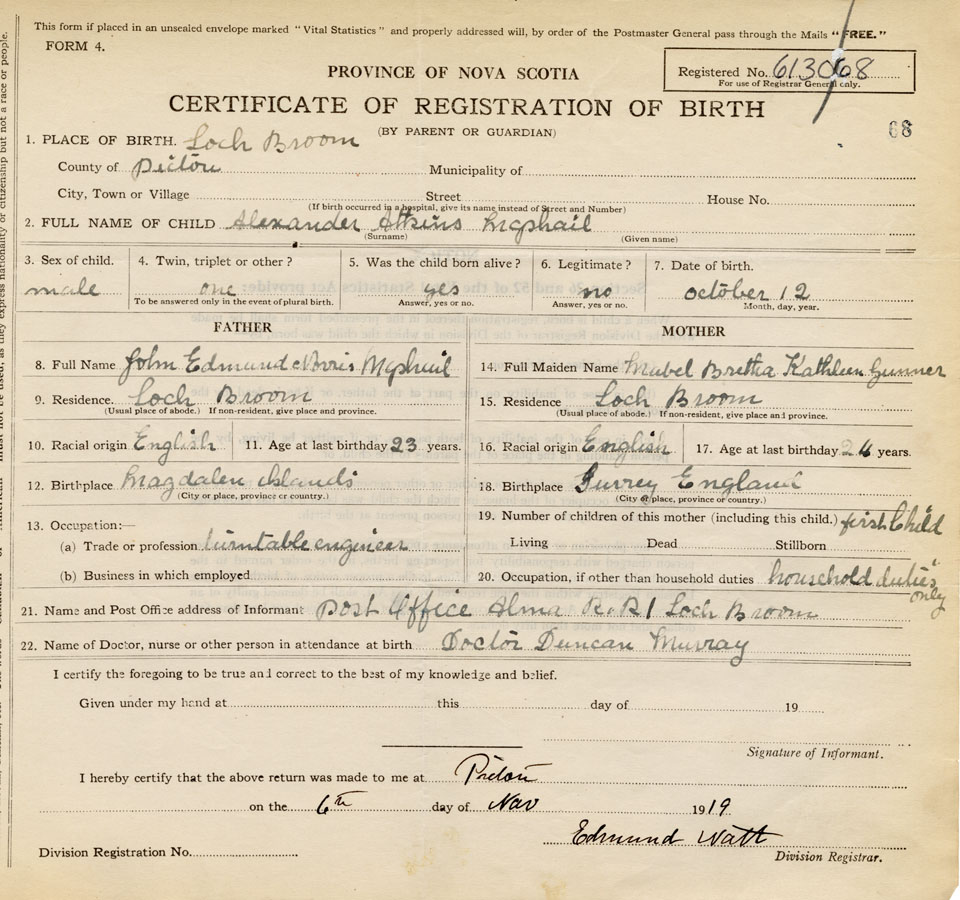 This form if placed in an unsealed envelope marked "Vital Statistics" and properly addressed will, by order of the Postmaster General pass through the Mails "FREE."
FORM 4.
Registered No. 613068
For use of Registrar General only.
PROVINCE OF NOVA SCOTIA
CERTIFICATE OF REGISTRATION OF BIRTH
(BY PARENT OR GUARDIAN)
68
1. PLACE OF BIRTH. Loch Broom
County of Pictou Municipality of
City, Town or Village Street House No.
(If birth occurred in a hospital, give its name instead of Street and Number)
2. FULL NAME OF CHILD Alexander Atkins Mcphail
(Surname) (Given name)
3. Sex of child. 4. Twin, triplet or other? 5. Was the child born alive? 6. Legitimate? 7. Date of birth.
male one yes no october 12
To be answered only in the event of plural birth. Answer, yes or no. Answer, yes or no. Month, day, year.
FATHER MOTHER
8. Full Name John Edmund Norris Mcphail 14. Full Maiden Name Mabel Bretha Kathleen Gunner
9. Residence. Loch Broom 15. Residence Loch Broom
(Usual place of abode.) If non-resident, give place and province. (Usual place of abode.) If non-resident, give place and province.
10. Racial origin English 11. Age at last birthday 23 years. 16. Racial origin English 17. Age at last birthday years.
12. Birthplace Magdalen Islands 18. Birthplace Surrey England
(City or place, province or country.) (City or place, province or country.)
13. Occupation:— 19. Number of children of this mother (including this child.) first Child
(a) Trade or profession turntable engineer Living Dead Stillborn
(b) Business in which employed 20. Occupation, if other than household duties household duties only
21. Name and Post Office address of Informant Post Office Alma R.R 1 Loch Broom
22. Name of Doctor, nurse or other person in attendance at birth Doctor Duncan Murray
I certify the foregoing to be true and correct to the best of my knowledge and belief.
Given under my hand at this day of 19
Signature of Informant.
I hereby certify that the above return was made to me at Pictou
on the 6th day of Nov 1919
Edmund Watt
Division Registration No. Division Registrar.